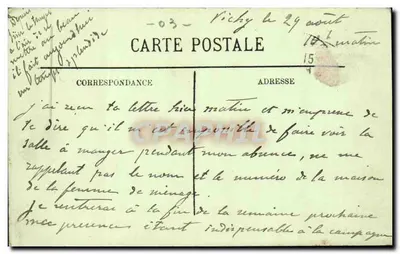 - 03 -
Vichy le 29 août
matin
15
fait aujourd'hui
un temps splendide
CARTE POSTALE
CORRESPONDANCE
ADRESSE
J'ai reçu ta lettre hier matin et m'empresse de
te dire qu'il m'est impossible de faire voir la
salle à manger pendant mon absence, ne me
rappelant pas le nom et le numéro de la maison
de la femme de ménage.
Je rentrerai à la fin de la semaine prochaine
mes presences étant indispensables à la campagne